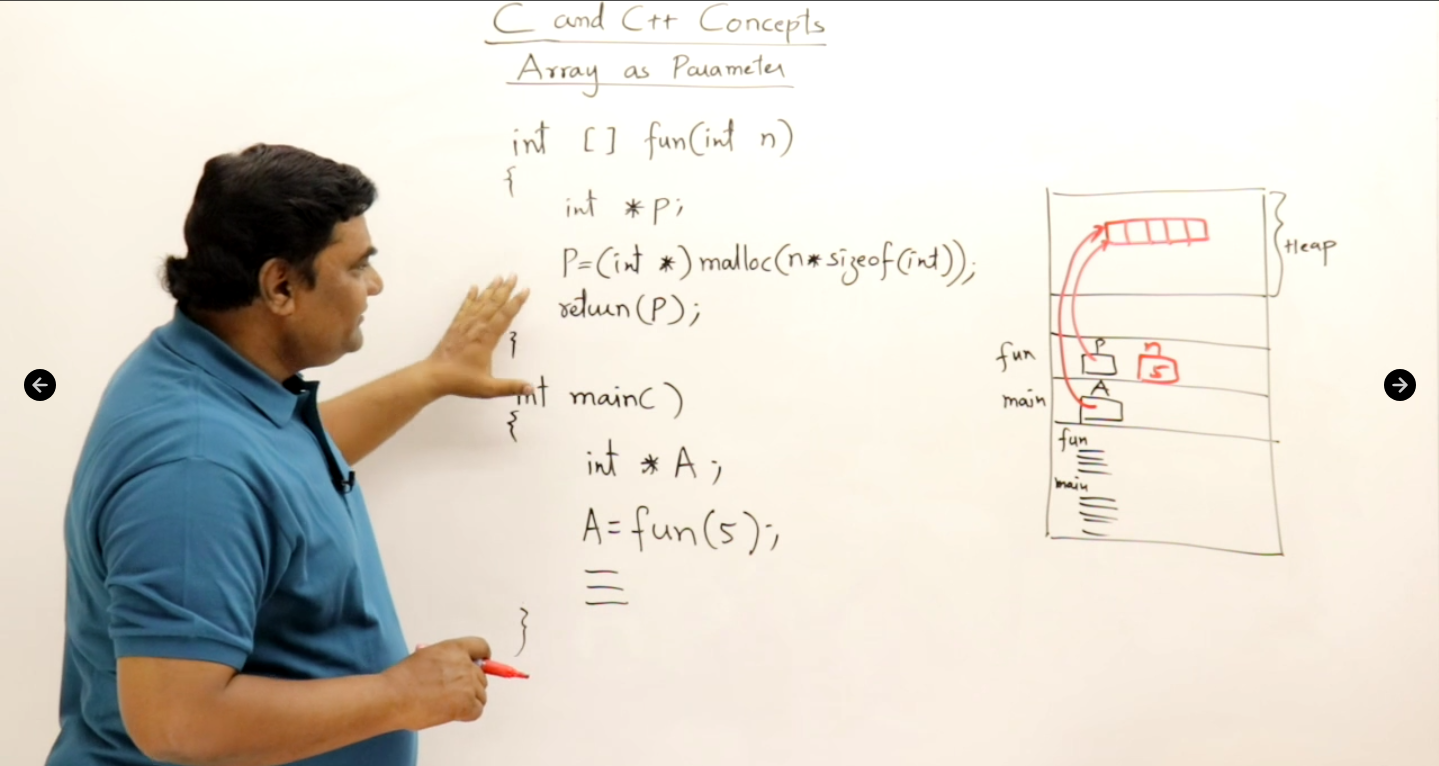 C and C++ Concepts
Array as Parameter
int [] fun(int n)
{
int *P;
P=(int *) malloc(n*sizeof(int));
return(P);
}
int main( )
{
int * A;
A=fun(5);
}
Heap
fun
P
n
5
main
A
fun
main